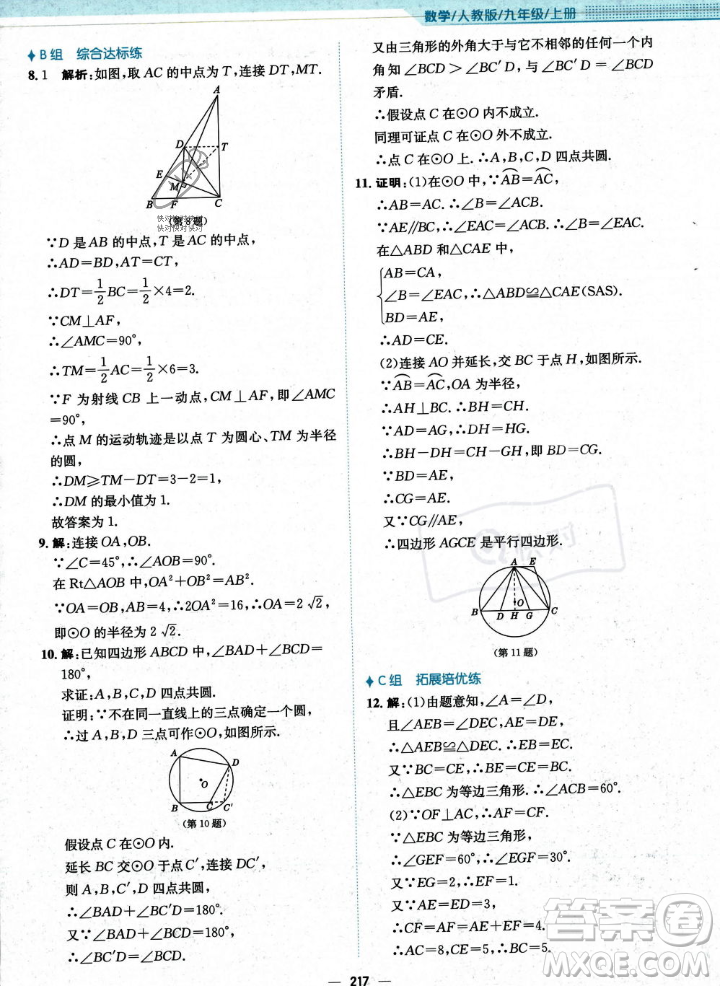 数学/人教版/九年级/上册
B组 综合达标练
8.1 解析:如图,取AC的中点为T,连接DT,MT.
A
D
T
E
M
B F C
(第8题)
快对快对快对
快对快对快对
∵D是AB的中点,T是AC的中点,
∴AD=BD,AT=CT,
∴DT=1/2BC=1/2×4=2.
∵CM⊥AF,
∴∠AMC=90°,
∴TM=1/2AC=1/2×6=3.
∵F为射线CB上一动点,CM⊥AF,即∠AMC=90°,
∴点M的运动轨迹是以点T为圆心、TM为半径
的圆,
∴DM≥TM-DT=3-2=1,
∴DM的最小值为1.
故答案为1.
9.解:连接OA,OB.
∵∠C=45°,∴∠AOB=90°.
在Rt△AOB中,OA²+OB²=AB².
∵OA=OB,AB=4,∴2OA²=16,∴OA=2√2,
即⊙O的半径为2√2.
10.解:已知四边形ABCD中,∠BAD+∠BCD=
180°,
求证:A,B,C,D四点共圆.
证明:∵不在同一直线上的三点确定一个圆.
∴过A,B,D三点可作⊙O,如图所示.
A
D
O
B C C′
(第10题)
假设点C在⊙O内.
延长BC交⊙O于点C′,连接DC′,
则A,B,C′,D四点共圆,
∴∠BAD+∠BC′D=180°.
又∵∠BAD+∠BCD=180°,
∴∠BC′D=∠BCD.
又由三角形的外角大于与它不相邻的任意一个内
角知∠BCD>∠BC′D,与∠BC′D=∠BCD
矛盾.
∴假设点C在⊙O内不成立.
同理可证点C在⊙O外不成立.
∴点C在⊙O上,∴A,B,C,D四点共圆.
11.证明:(1)在⊙O中,∵AB=AC,
∴AB=AC.∴∠B=∠ACB.
∵AE∥BC,∴∠EAC=∠ACB.∴∠B=∠EAC.
在△ABD和△CAE中,
AB=CA,
∠B=∠EAC,∴△ABD≌△CAE(SAS).
BD=AE,
∴AD=CE.
(2)连接AO并延长,交BC于点H,如图所示.
∵AB=AC,OA为半径,
∴AH⊥BC.∴BH=CH.
∵AD=AG,∴DH=HG.
∴BH-DH=CH-GH,即BD=CG.
∵BD=AE,
∴CG=AE.
又∵CG∥AE,
∴四边形AGCE是平行四边形.
快对
A E
O
B D H G C
(第11题)
C组 拓展培优练
12.解:(1)由题意知,∠A=∠D,
且∠AEB=∠DEC,AE=DE,
∴△AEB≌△DEC,∴BE=EC.
又∵BC=CE,∴BE=EC=BC,
∴△EBC为等边三角形,∴∠ACB=60°.
(2)∵OF⊥AC,∴AF=CF.
∵△EBC为等边三角形,
∴∠GEF=60°,∴∠EGF=30°.
又∵EG=2,∴EF=1.
又∵AE=ED=3,
∴CF=AF=4.∴AC=8,EC=5.
又∵BC=EC,∴BC=5.
答案圈
MXQE.COM
217